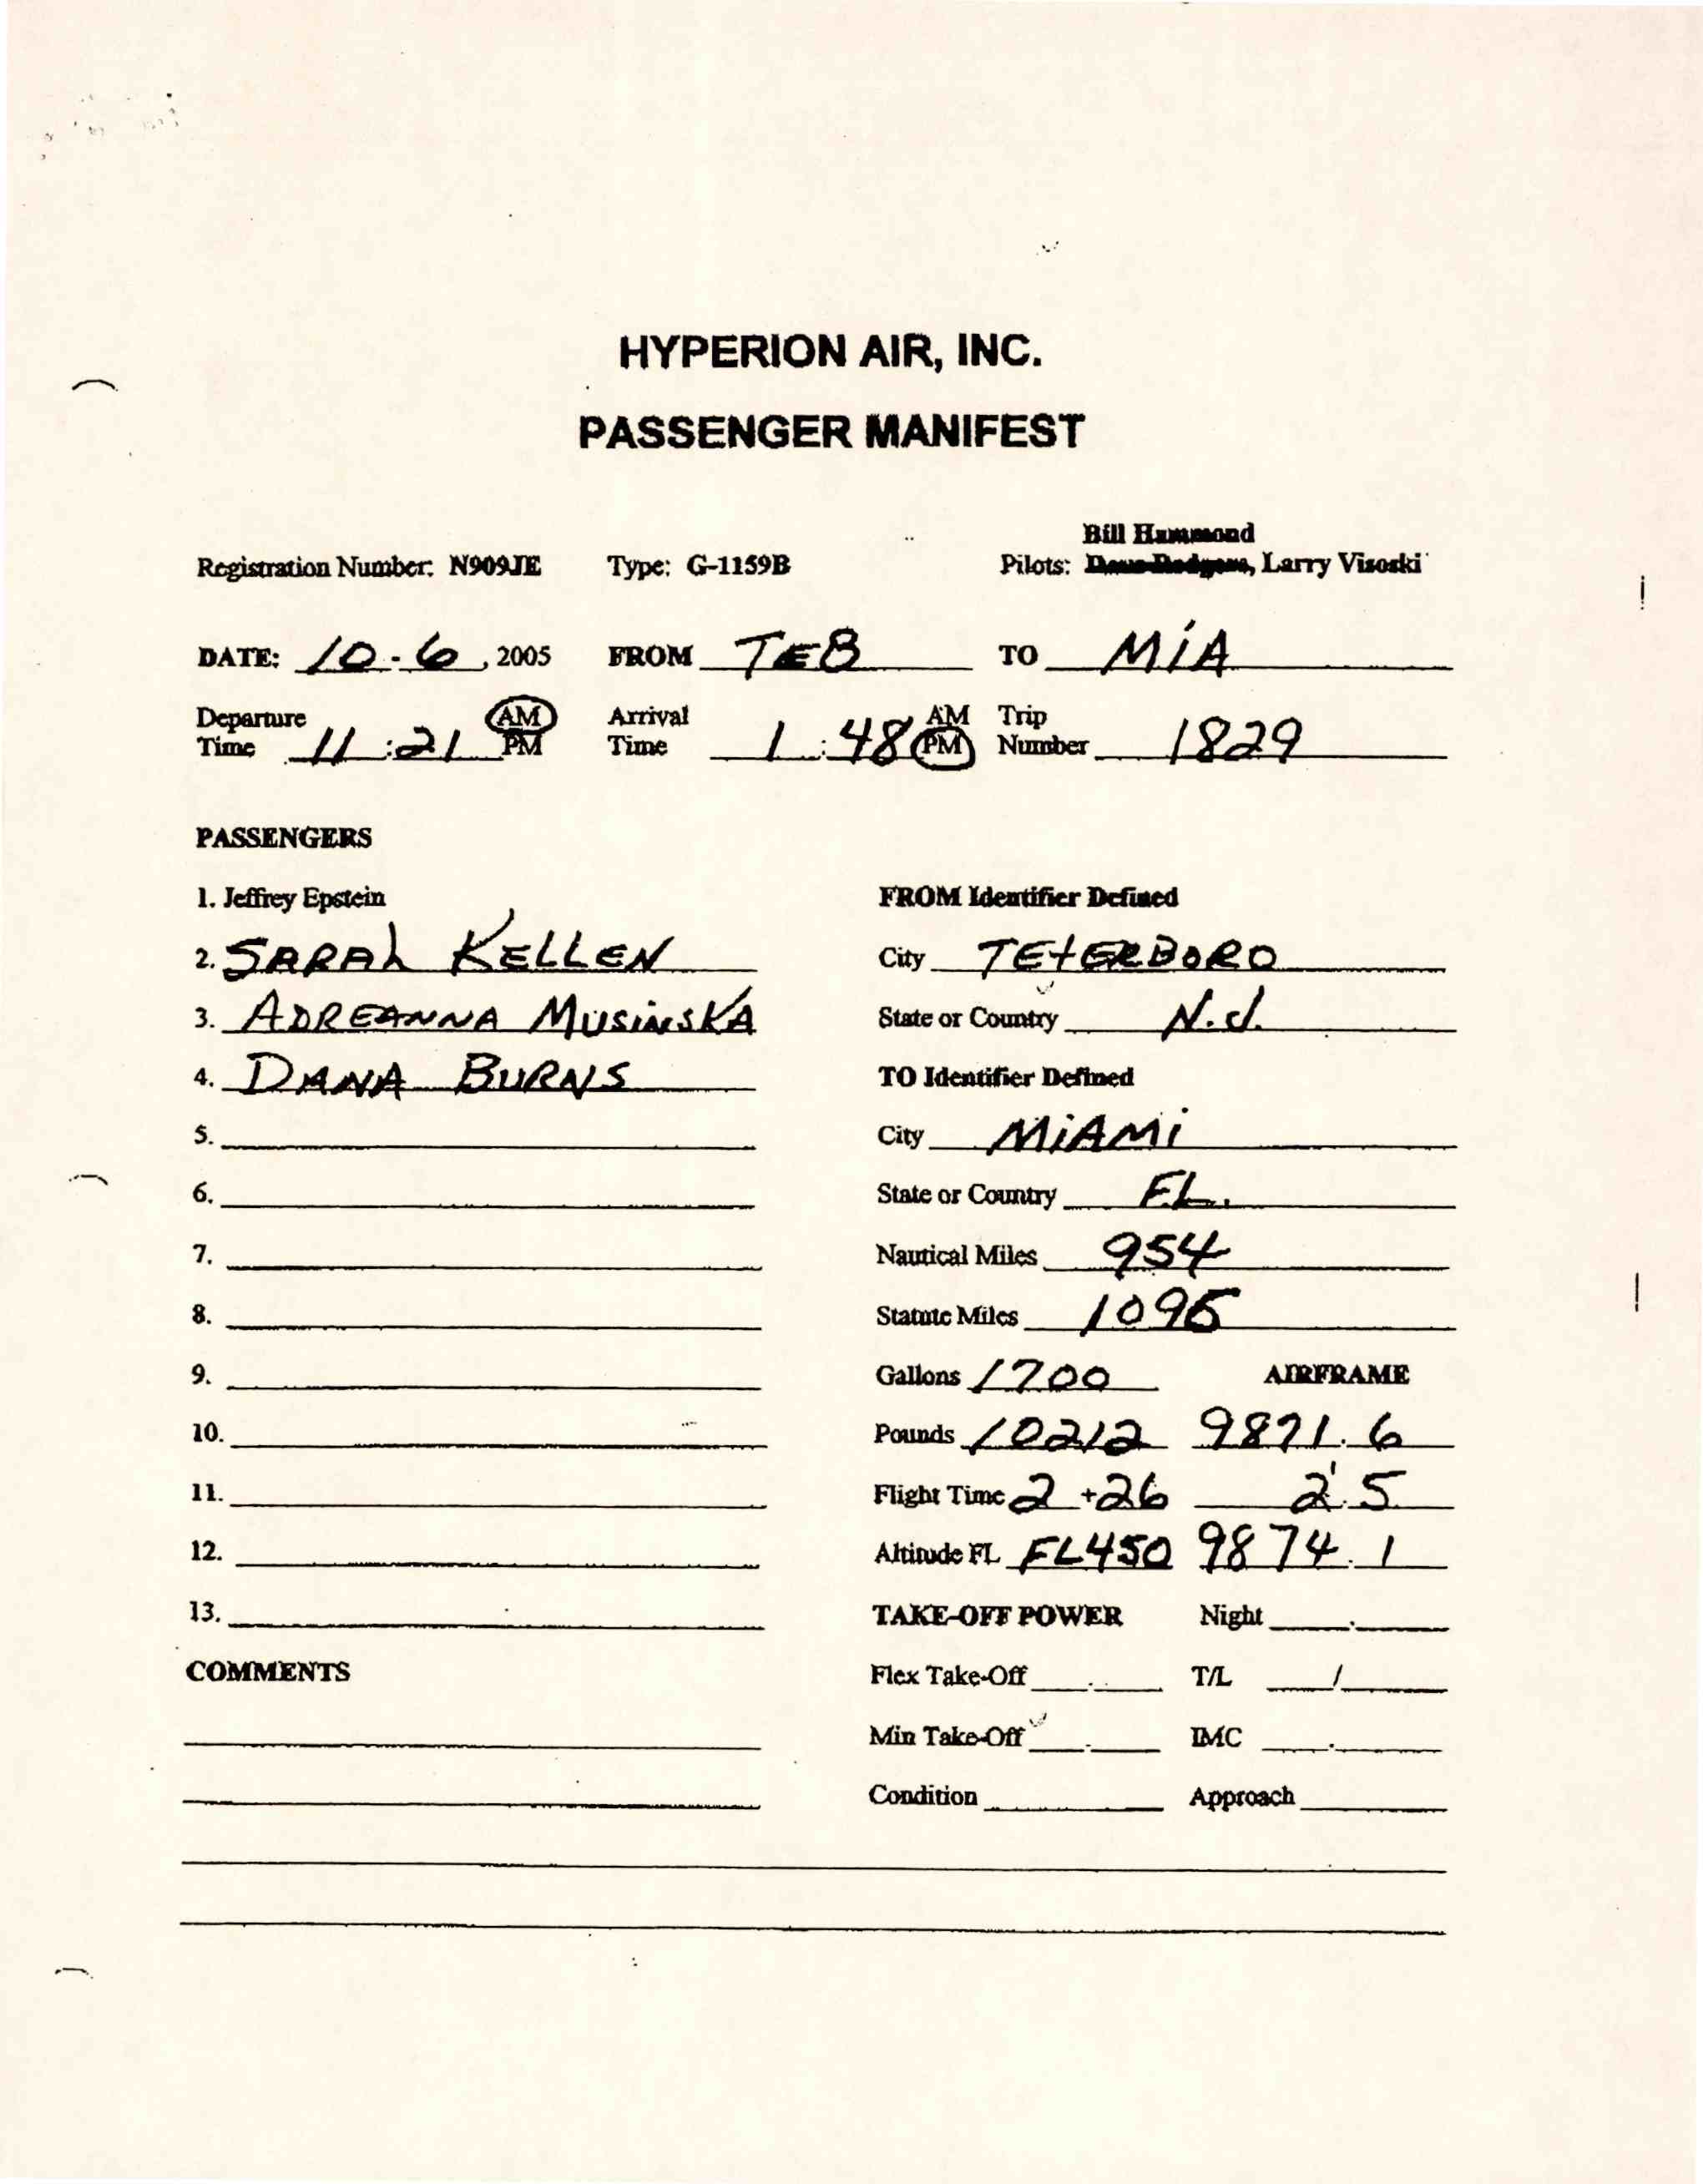 HYPERION AIR, INC.
PASSENGER MANIFEST
Bill Hammond
Registration Number: N909JE Type: G-1159B Pilots: Larry Visoski
DATE: 10-6, 2005 FROM TEB TO MiA
Departure Time 11:21 AM PM Arrival Time 1:48 AM PM Trip Number 1829
PASSENGERS
1. Jeffrey Epstein FROM Identifier Defined
2. SARAh KELLEN City TETERBORO
3. ADREANNA MUSiNSKA State or Country N.J.
4. DANA BURNS TO Identifier Defined
5. City MiAMi
6. State or Country FL.
7. Nautical Miles 954
8. Statute Miles 1096
9. Gallons 1700 AIRFRAME
10. Pounds 10212 9871.6
11. Flight Time 2+26 2.5
12. Altitude FL FL450 9874.1
13. TAKE-OFF POWER Night
COMMENTS Flex Take-Off T/L /
Min Take-Off IMC
Condition Approach